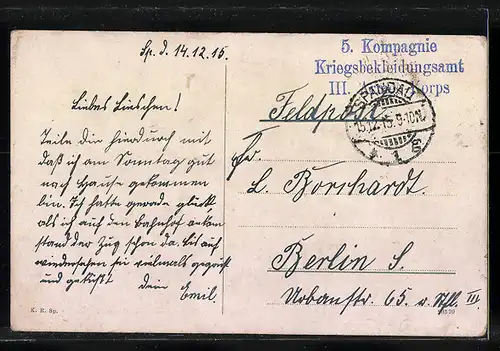 Sp. d. 14.12.15.
5. Kompagnie
Kriegsbekleidungsamt
III. corps
Feldpost.
SPANDAU
15.12.15.9-10N.
1
Liebes Lieschen!
Teile dir hierdurch mit
daß ich am Sonntag gut
nach Hause gekommen
bin. Ich hatte gerade glück
als ich auf den Bahnhof ankam
stand der Zug schon da. Bis auf
wiedersehen sei vielmals gegrüßt
und geküßt dein
Emil.
Fr.
L. Borchardt.
Berlin S.
Urbanstr. 65. v. III.
K. E. Sp.